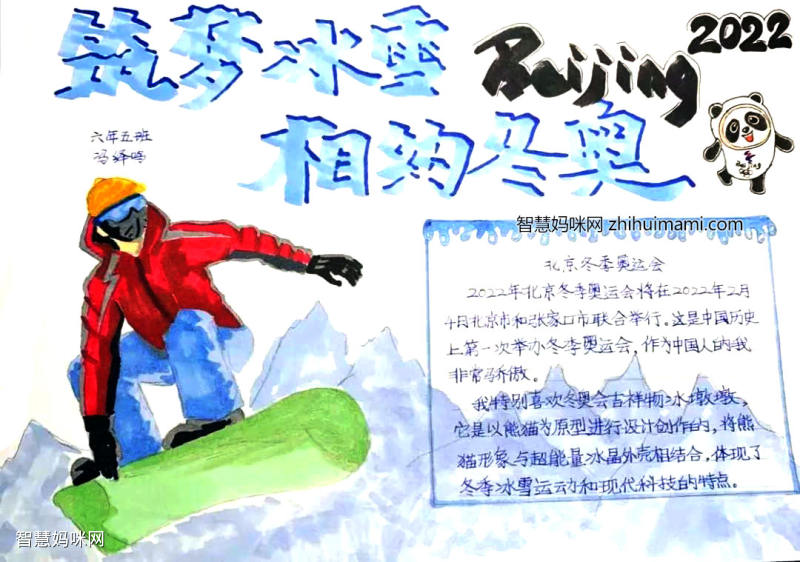 筑梦冰雪
Beijing
2022
相约冬奥
六年五班
智慧妈咪网 zhihuimami.com
北京冬季奥运会
2022年北京冬季奥运会将在2022年2月
4日北京市和张家口市联合举行。这是中国历史
上第一次举办冬季奥运会，作为中国人的我
非常骄傲。
我特别喜欢冬奥会吉祥物冰墩墩，
它是以熊猫为原型进行设计创作的，将熊
猫形象与超能量冰晶外壳相结合，体现了
冬季冰雪运动和现代科技的特点。
智慧妈咪网